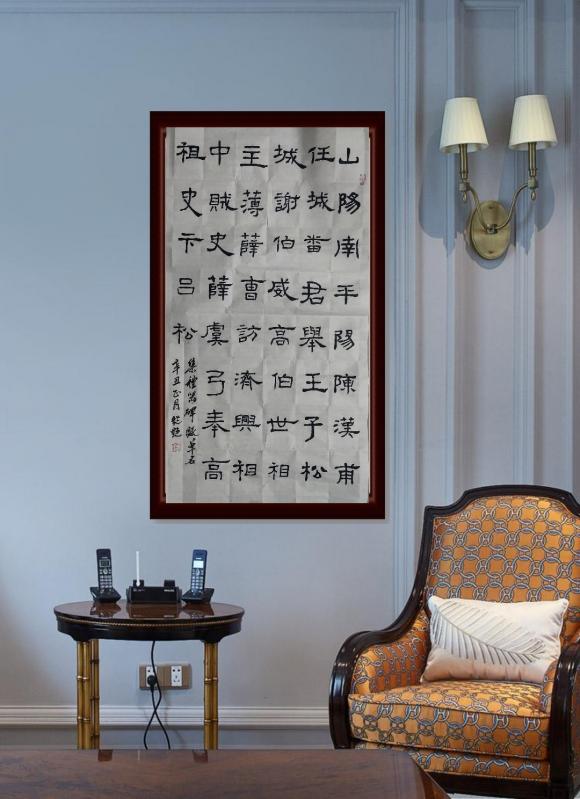 山陽南平陽陳漢甫
任城番君舉王子松
城謝伯威高伯世相
主薄薛曹訪濟興相
中賊史薛虞弓奉高
祖史卞呂松
集禮器碑
辛丑正月